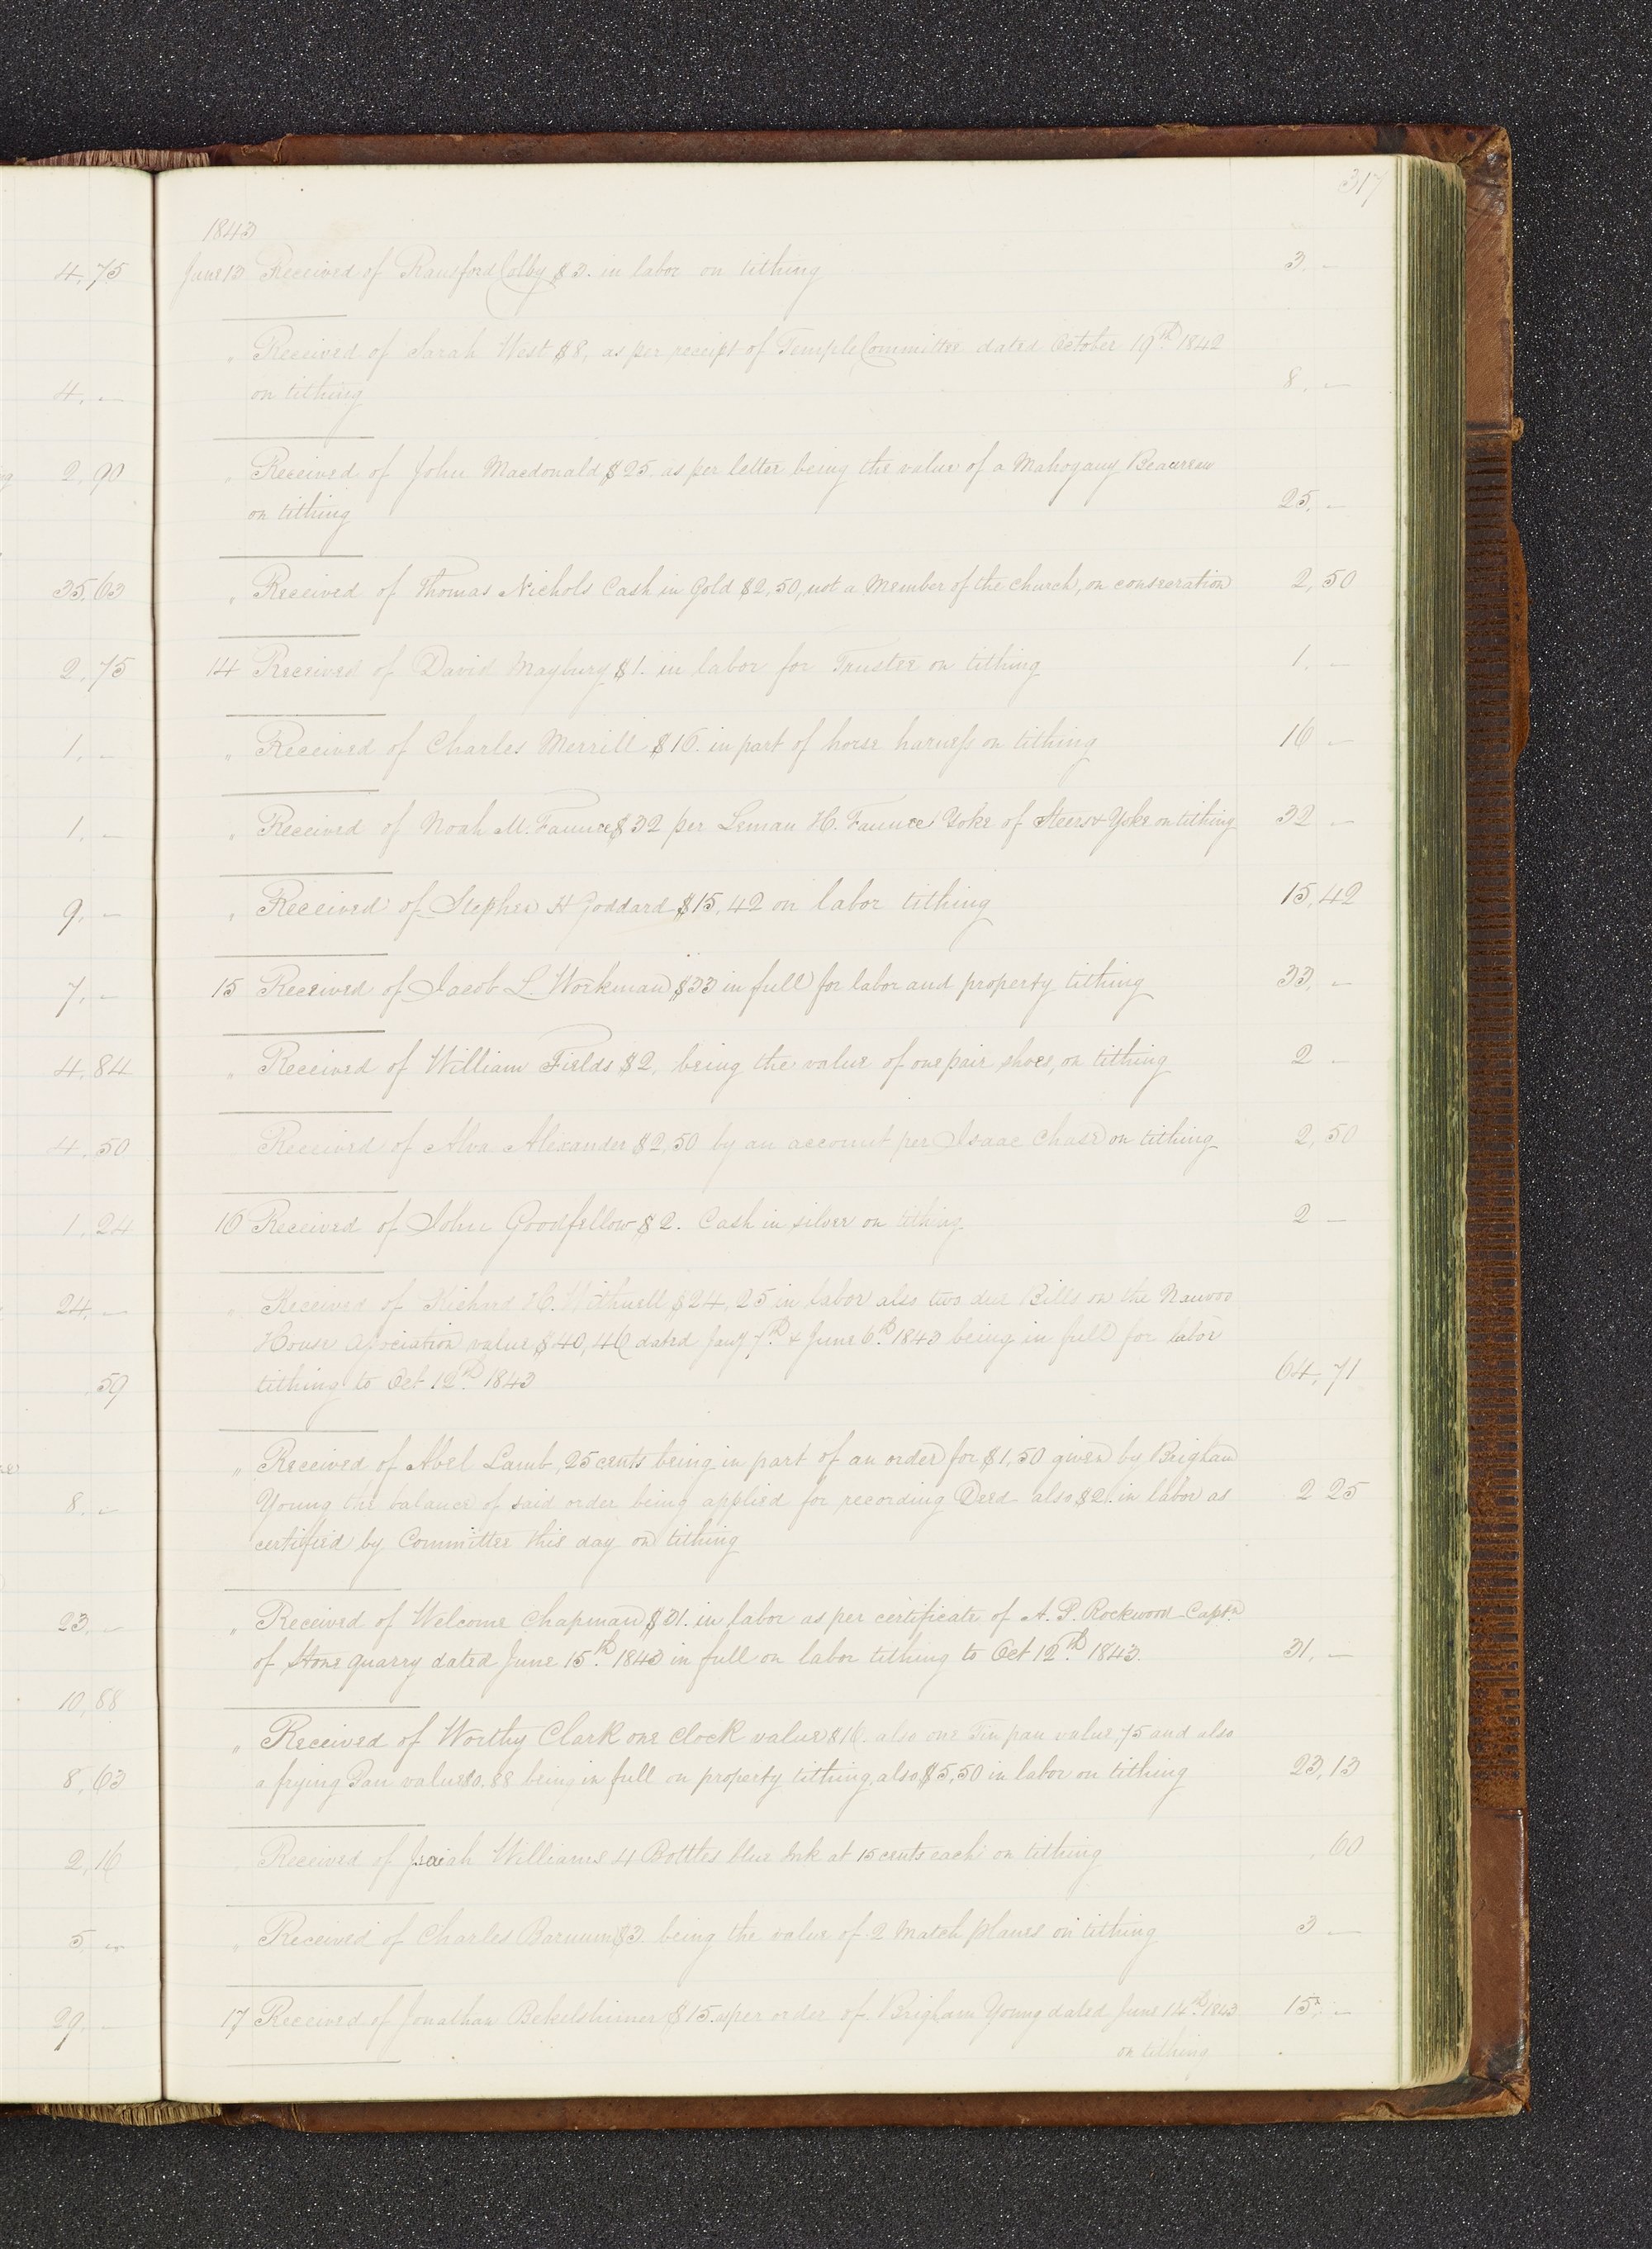 317
1843
June 13 Received of Ransford Colby $3. in labor on tithing 3. —
" Received of Sarah West $8, as per receipt of Temple Committee dated October 19th. 1842
on tithing 8. —
" Received of John Macdonald $25. as per letter being the value of a Mahogany Beaureau
on tithing 25. —
" Received of Thomas Nichols Cash in Gold $2,50, not a Member of the church, on consecration 2,50
14 Received of David Maybury $1. in labor for Trustee on tithing 1. —
" Received of Charles Merrill $16. in part of horse harness on tithing 16 —
" Received of Noah M. Faunce $32 per Leman H. Faunce Yoke of Steers & Yoke on tithing 32 —
" Received of Stephen H Goddard $15,42 on labor tithing 15,42
15 Received of Jacob L. Workman $33 in full for labor and property tithing 33, —
" Received of William Fields $2, being the value of one pair shoes, on tithing 2 —
Received of Alva Alexander $2,50 by an account per Isaac Chase on tithing 2,50
16 Received of John Goodfellow $2. Cash in silver on tithing 2 —
" Received of Richard H. Withnell $24,25 in labor also two due Bills on the Nauvoo
House Association value $40,46 dated Jany 7th. & June 6th. 1843 being in full for labor
tithing to Oct 12th. 1843 64,71
" Received of Abel Lamb, 25 cents being in part of an order for $1,50 given by Brigham
Young the balance of said order being applied for recording Deed also $2. in labor as 2 25
certified by Committee this day on tithing
" Received of Welcome Chapman $31. in labor as per certificate of A. P. Rockwood Captn.
of Stone quarry dated June 15th. 1843 in full on labor tithing to Oct 12th. 1843. 31, —
" Received of Worthy Clark one clock value $16. also one Tin pan value ,75 and also
a frying Pan value $0.88 being in full on property tithing, also $5,50 in labor on tithing 23,13
" Received of Isaiah Williams 4 Bottles blue Ink at 15 cents each on tithing ,60
" Received of Charles Barnum $3 being the value of 2 Match planes on tithing 3 —
17 Received of Jonathan Bekelshimer $15. as per order of Brigham Young dated June 14th. 1843 15, —
on tithing
4,75
4, —
2,90
35,63
2,75
1, —
1, —
9, —
7, —
4,84
4,50
1,24
24, —
,59
8, —
23, —
10,88
8,63
2,16
5, —
29, —